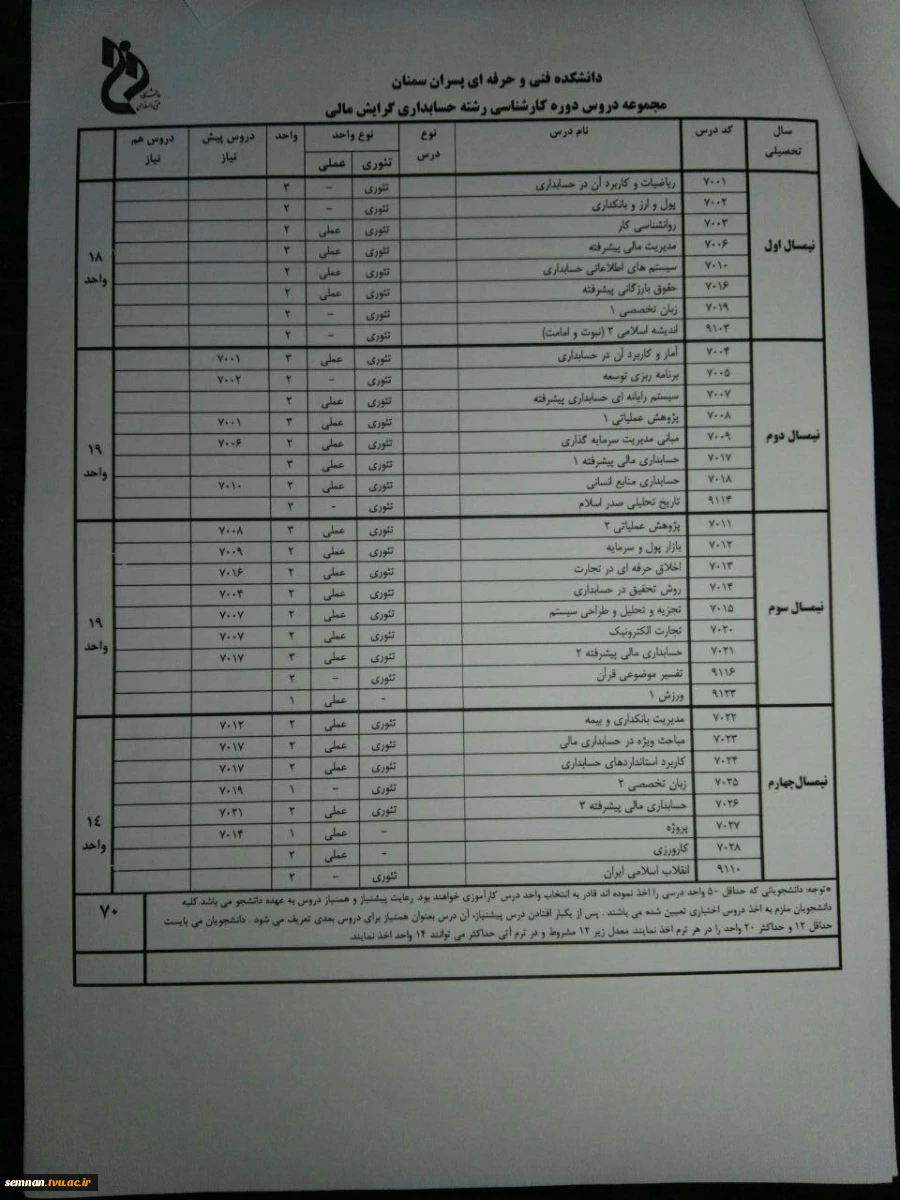 دانشکده فنی و حرفه ای پسران سمنان
مجموعه دروس دوره کارشناسی رشته حسابداری گرایش مالی
سال تحصیلی کد درس نام درس نوع درس نوع واحد واحد دروس پیش نیاز دروس هم نیاز
تئوری عملی
نیمسال اول
۷۰۰۱ ریاضیات و کاربرد آن در حسابداری تئوری - ۳
۷۰۰۲ پول و ارز و بانکداری تئوری - ۲
۷۰۰۳ روانشناسی کار تئوری عملی ۲
۷۰۰۶ مدیریت مالی پیشرفته تئوری عملی ۳
۷۰۱۰ سیستم های اطلاعاتی حسابداری تئوری عملی ۲
۷۰۱۶ حقوق بازرگانی پیشرفته تئوری عملی ۲
۷۰۱۹ زبان تخصصی ۱ تئوری - ۲
۹۱۰۳ اندیشه اسلامی ۲ (نبوت و امامت) تئوری - ۲
۱۸ واحد
نیمسال دوم
۷۰۰۴ آمار و کاربرد آن در حسابداری تئوری عملی ۳ ۷۰۰۱
۷۰۰۵ برنامه ریزی توسعه تئوری - ۲ ۷۰۰۲
۷۰۰۷ سیستم رایانه ای حسابداری پیشرفته تئوری عملی ۲
۷۰۰۸ پژوهش عملیاتی ۱ تئوری عملی ۳ ۷۰۰۱
۷۰۰۹ مبانی مدیریت سرمایه گذاری تئوری عملی ۲ ۷۰۰۶
۷۰۱۷ حسابداری مالی پیشرفته ۱ تئوری عملی ۳
۷۰۱۸ حسابداری منابع انسانی تئوری عملی ۲ ۷۰۱۰
۹۱۱۴ تاریخ تحلیلی صدر اسلام تئوری - ۲
۱۹ واحد
نیمسال سوم
۷۰۱۱ پژوهش عملیاتی ۲ تئوری عملی ۳ ۷۰۰۸
۷۰۱۲ بازار پول و سرمایه تئوری عملی ۲ ۷۰۰۹
۷۰۱۳ اخلاق حرفه ای در تجارت تئوری عملی ۲ ۷۰۱۶
۷۰۱۴ روش تحقیق در حسابداری تئوری عملی ۲ ۷۰۰۴
۷۰۱۵ تجزیه و تحلیل و طراحی سیستم تئوری عملی ۲ ۷۰۰۷
۷۰۲۰ تجارت الکترونیک تئوری عملی ۲ ۷۰۰۷
۷۰۲۱ حسابداری مالی پیشرفته ۲ تئوری عملی ۳ ۷۰۱۷
۹۱۱۶ تفسیر موضوعی قرآن تئوری - ۲
۹۱۲۳ ورزش ۱ - عملی ۱
۱۹ واحد
نیمسال چهارم
۷۰۲۲ مدیریت بانکداری و بیمه تئوری عملی ۲ ۷۰۱۲
۷۰۲۳ مباحث ویژه در حسابداری مالی تئوری عملی ۲ ۷۰۱۷
۷۰۲۴ کاربرد استانداردهای حسابداری تئوری عملی ۲ ۷۰۱۷
۷۰۲۵ زبان تخصصی ۲ تئوری - ۱ ۷۰۱۹
۷۰۲۶ حسابداری مالی پیشرفته ۳ تئوری عملی ۲ ۷۰۲۱
۷۰۲۷ پروژه - عملی ۱ ۷۰۱۴
۷۰۲۸ کارورزی - عملی ۲
۹۱۱۰ انقلاب اسلامی ایران تئوری - ۲
۱۴ واحد
*توجه: دانشجویانی که حداقل ۵۰ واحد درسی را اخذ نموده اند قادر به انتخاب واحد درس کارآموزی خواهند بود. رعایت پیشنیاز و همنیاز دروس به عهده دانشجو می باشد.کلیه
دانشجویان ملزم به اخذ دروس اختیاری تعیین شده می باشند . پس از یکبار افتادن درس پیشنیاز، آن درس بعنوان همنیاز برای دروس بعدی تعریف می شود . دانشجویان می بایست
حداقل ۱۲ و حداکثر ۲۰ واحد را در هر ترم اخذ نمایند. معدل زیر ۱۲ مشروط و در ترم آتی حداکثر می توانند ۱۴ واحد اخذ نمایند.
۷۰
semnan.tvu.ac.ir